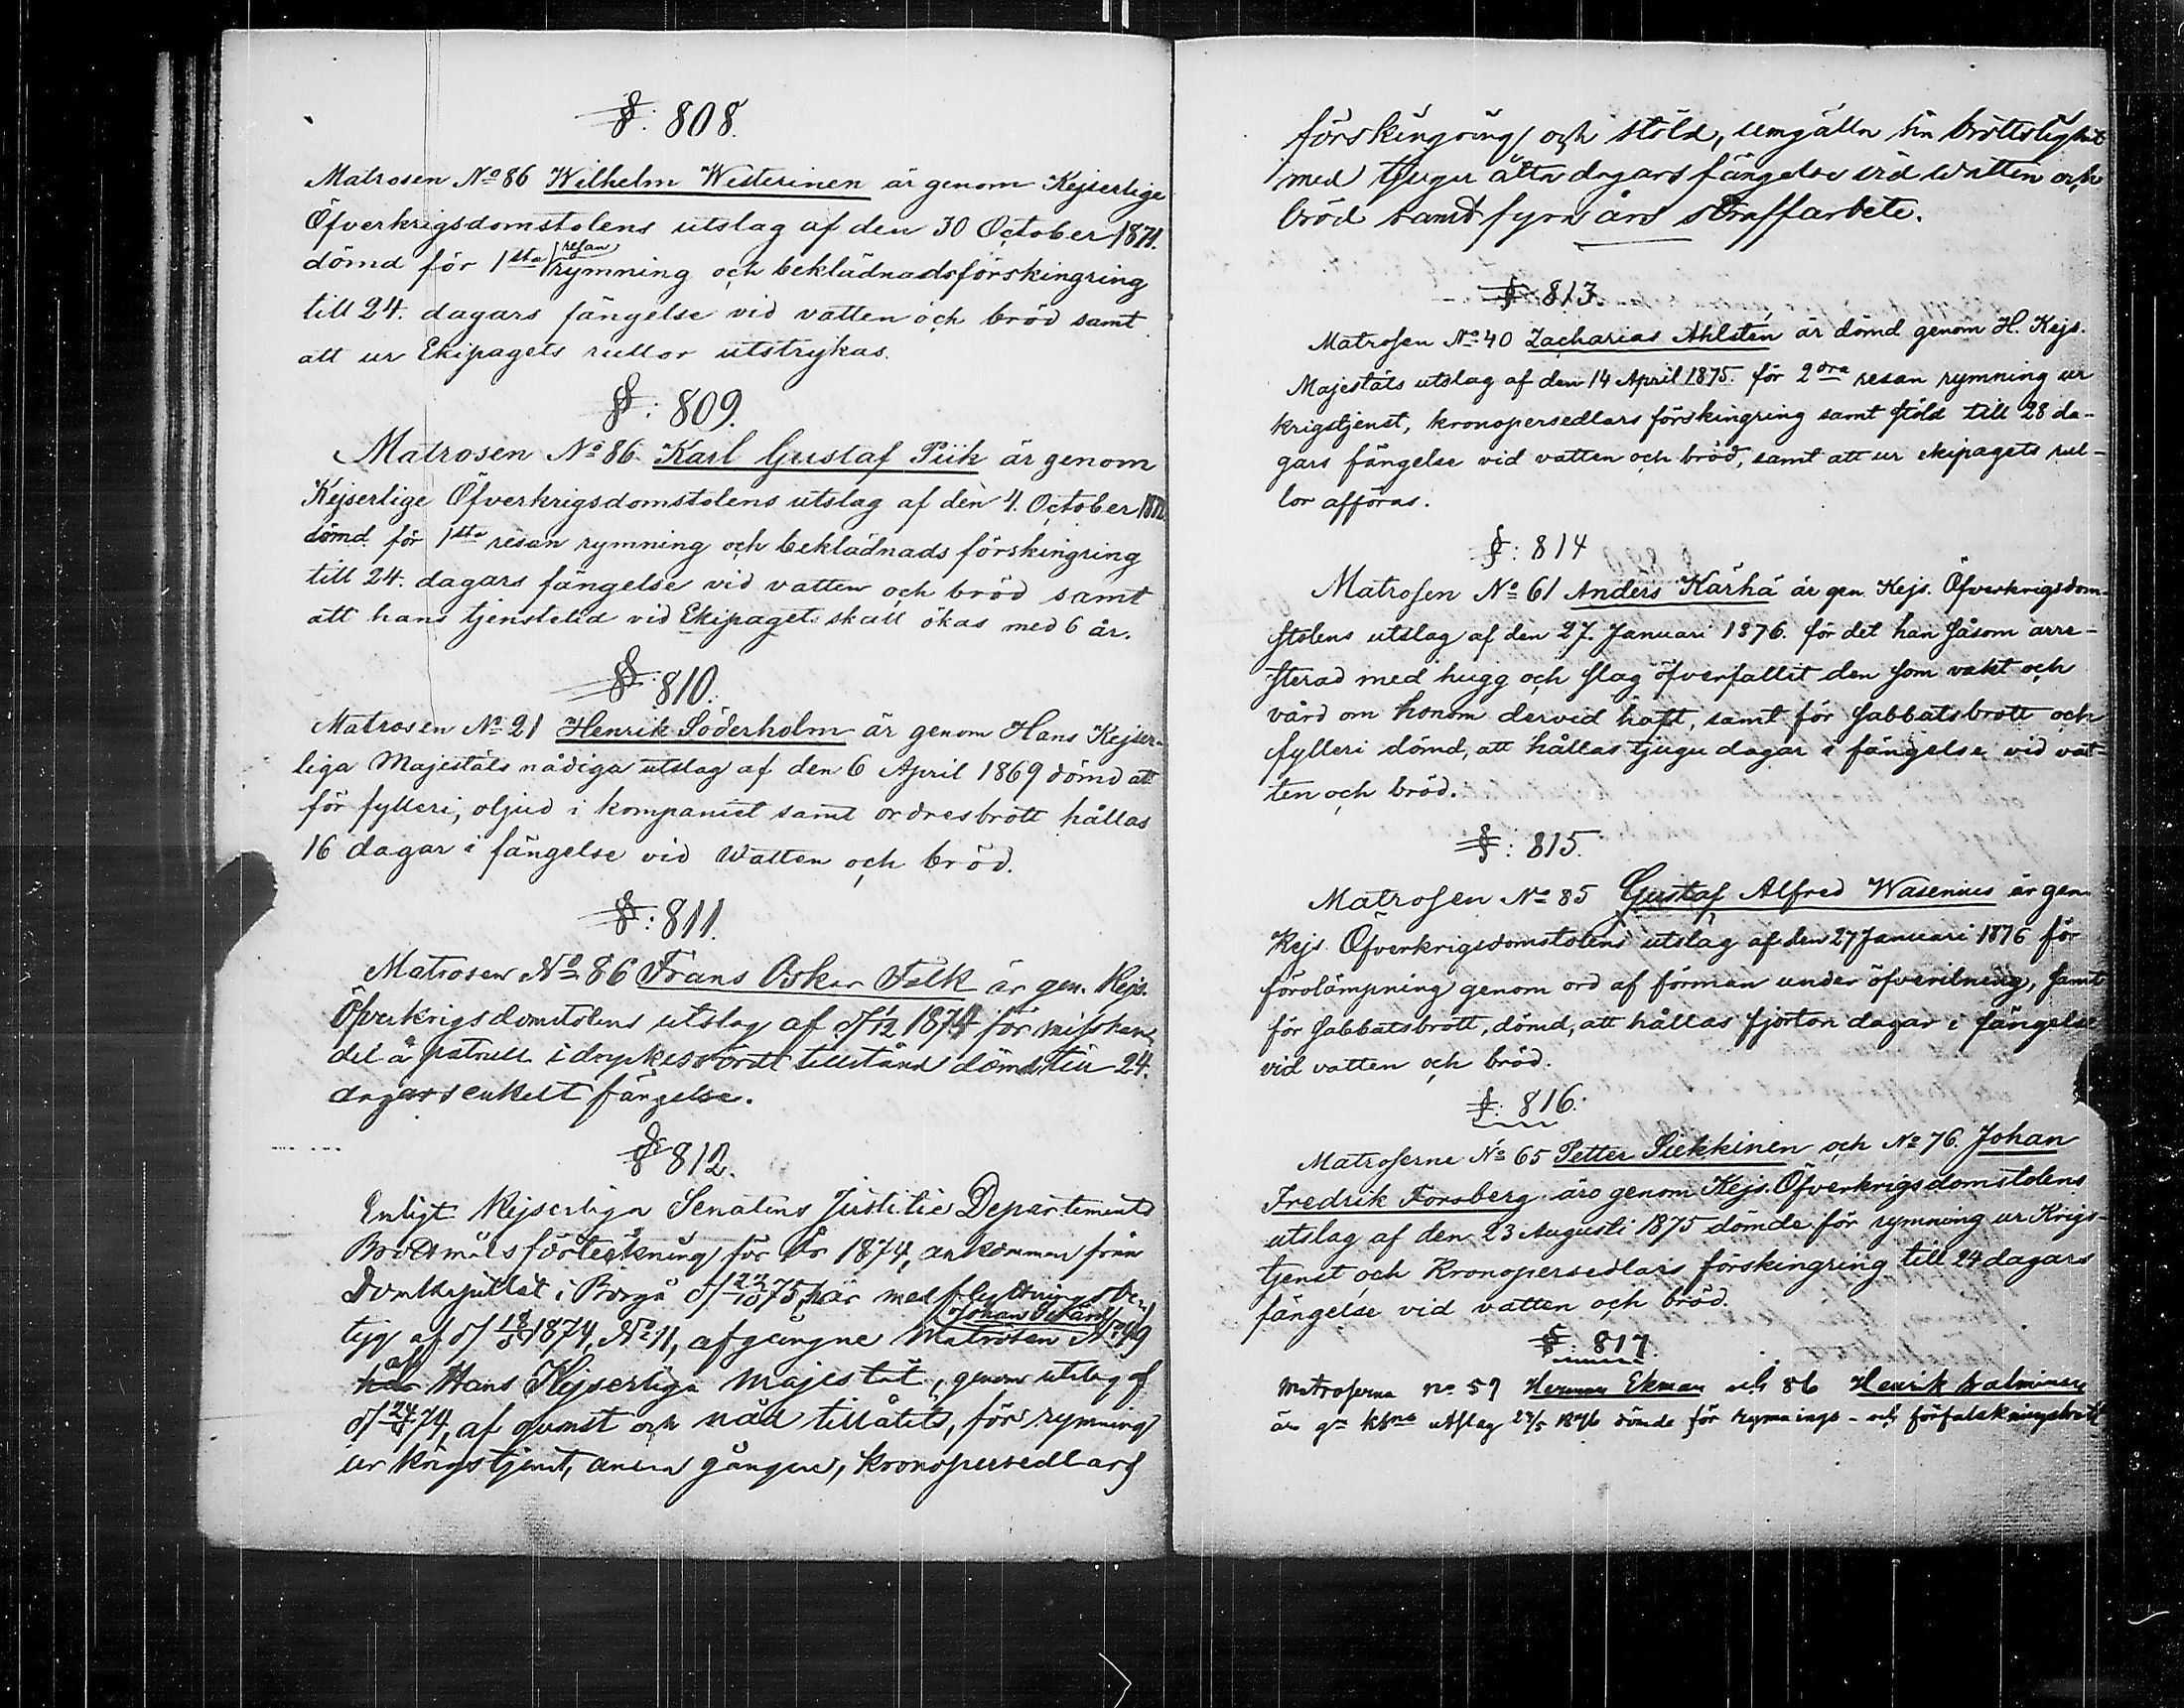 §: 808.
Matrosen No 86 Wilhelm Westerinen är genom Kejserlige
Öfverkrigsdomstolens utslag af den 30 October 1871.
dömd för 1sta resan rymning och beklädnadsförskingring
till 24. dagars fängelse vid vatten och bröd samt
att ur Ekipagets rullor utstrykas.
§: 809.
Matrosen No 86 Karl Gustaf Piik är genom
Kejserlige Öfverkrigsdomstolens utslag af den 4. October
dömd för 1sta resan rymning och beklädnads förskingring
till 24. dagars fängelse vid vatten och bröd samt
att hans tjenstetid vid Ekipaget skall ökas med 6 år.
§: 810.
Matrosen No 21 Henrik Söderholm är genom Hans Kejser-
liga Majestäts nådiga utslag af den 6 April 1869 dömd att
för fylleri, oljud i kompaniet samt ordresbrott hållas
16 dagar i fängelse vid Watten och bröd.
§: 811.
Matrosen No 86 Frans Oskar Falk är gen. Kejs.
Öfverkrigsdomstolens utslag af d/ 1/12 1874 för misshan-
del å patrull i dryckesstördt tillstånd dömd till 24.
dagars enkelt fängelse.
§ 812.
Enligt Kejserliga Senatens Justitie Departements
Brottmålsförteckning för år 1874, ankommen från
Domkapitlet i Borgå d/ 22/10 75, har med flyttningsbe-
tyg af d/ 18/8 1874, No 11, afgångne Matrosen No 49 Johan
af Hans Kejserliga Majestät, genom utslag af
d/ 24/ 74, af gunst och nåd tillåtits, för rymning
ur krigstjenst, andra gången, kronopersedlars
förskingring och stöld, umgälla sin brottslighet
med tjugu åtta dagars fängelse vid vatten och
bröd samt fyra års straffarbete.
§: 813.
Matrosen No 40 Zacharias Ahlsten är dömd genom H. Kejs.
Majestäts utslag af den 14 April 1875. för 2dra resan rymning ur
krigstjenst, kronopersedlars förskingring samt stöld till 28 da-
gars fängelse vid vatten och bröd, samt att ur ekipagets rul-
lor afföras.
§: 814
Matrosen No 61 Anders Kärhä är gen. Kejs. Öfverkrigsdom-
stolens utslag af den 27. Januari 1876. för det han såsom arre-
sterad med hugg och slag öfverfallit den som vakt och
vård om honom dervid haft, samt för sabbatsbrott och
fylleri dömd, att hållas tjugu dagar i fängelse vid vat-
ten och bröd.
§: 815.
Matrosen No 85 Gustaf Alfred Wasenius är gen.
Kejs. Öfverkrigsdomstolens utslag af den 27 Januari 1876 för
förolämpning genom ord af förman under öfverilning, samt
för sabbatsbrott, dömd, att hållas fjorton dagar i fängelse
vid vatten och bröd.
§: 816.
Matroserne No 65 Petter Siekkinen och No 76. Johan
Fredrik Forsberg äro genom Kejs. Öfverkrigsdomstolens
utslag af den 23 Augusti 1875 dömde för rymning ur Krigs-
tjenst och Kronopersedlars förskingring till 24 dagars
fängelse vid vatten och bröd.
§: 817.
Matroserna no 59 Herman Ekman och 86 Henrik
äro gm utslag 1876 dömde för rymnings- och förfalskningsbrott